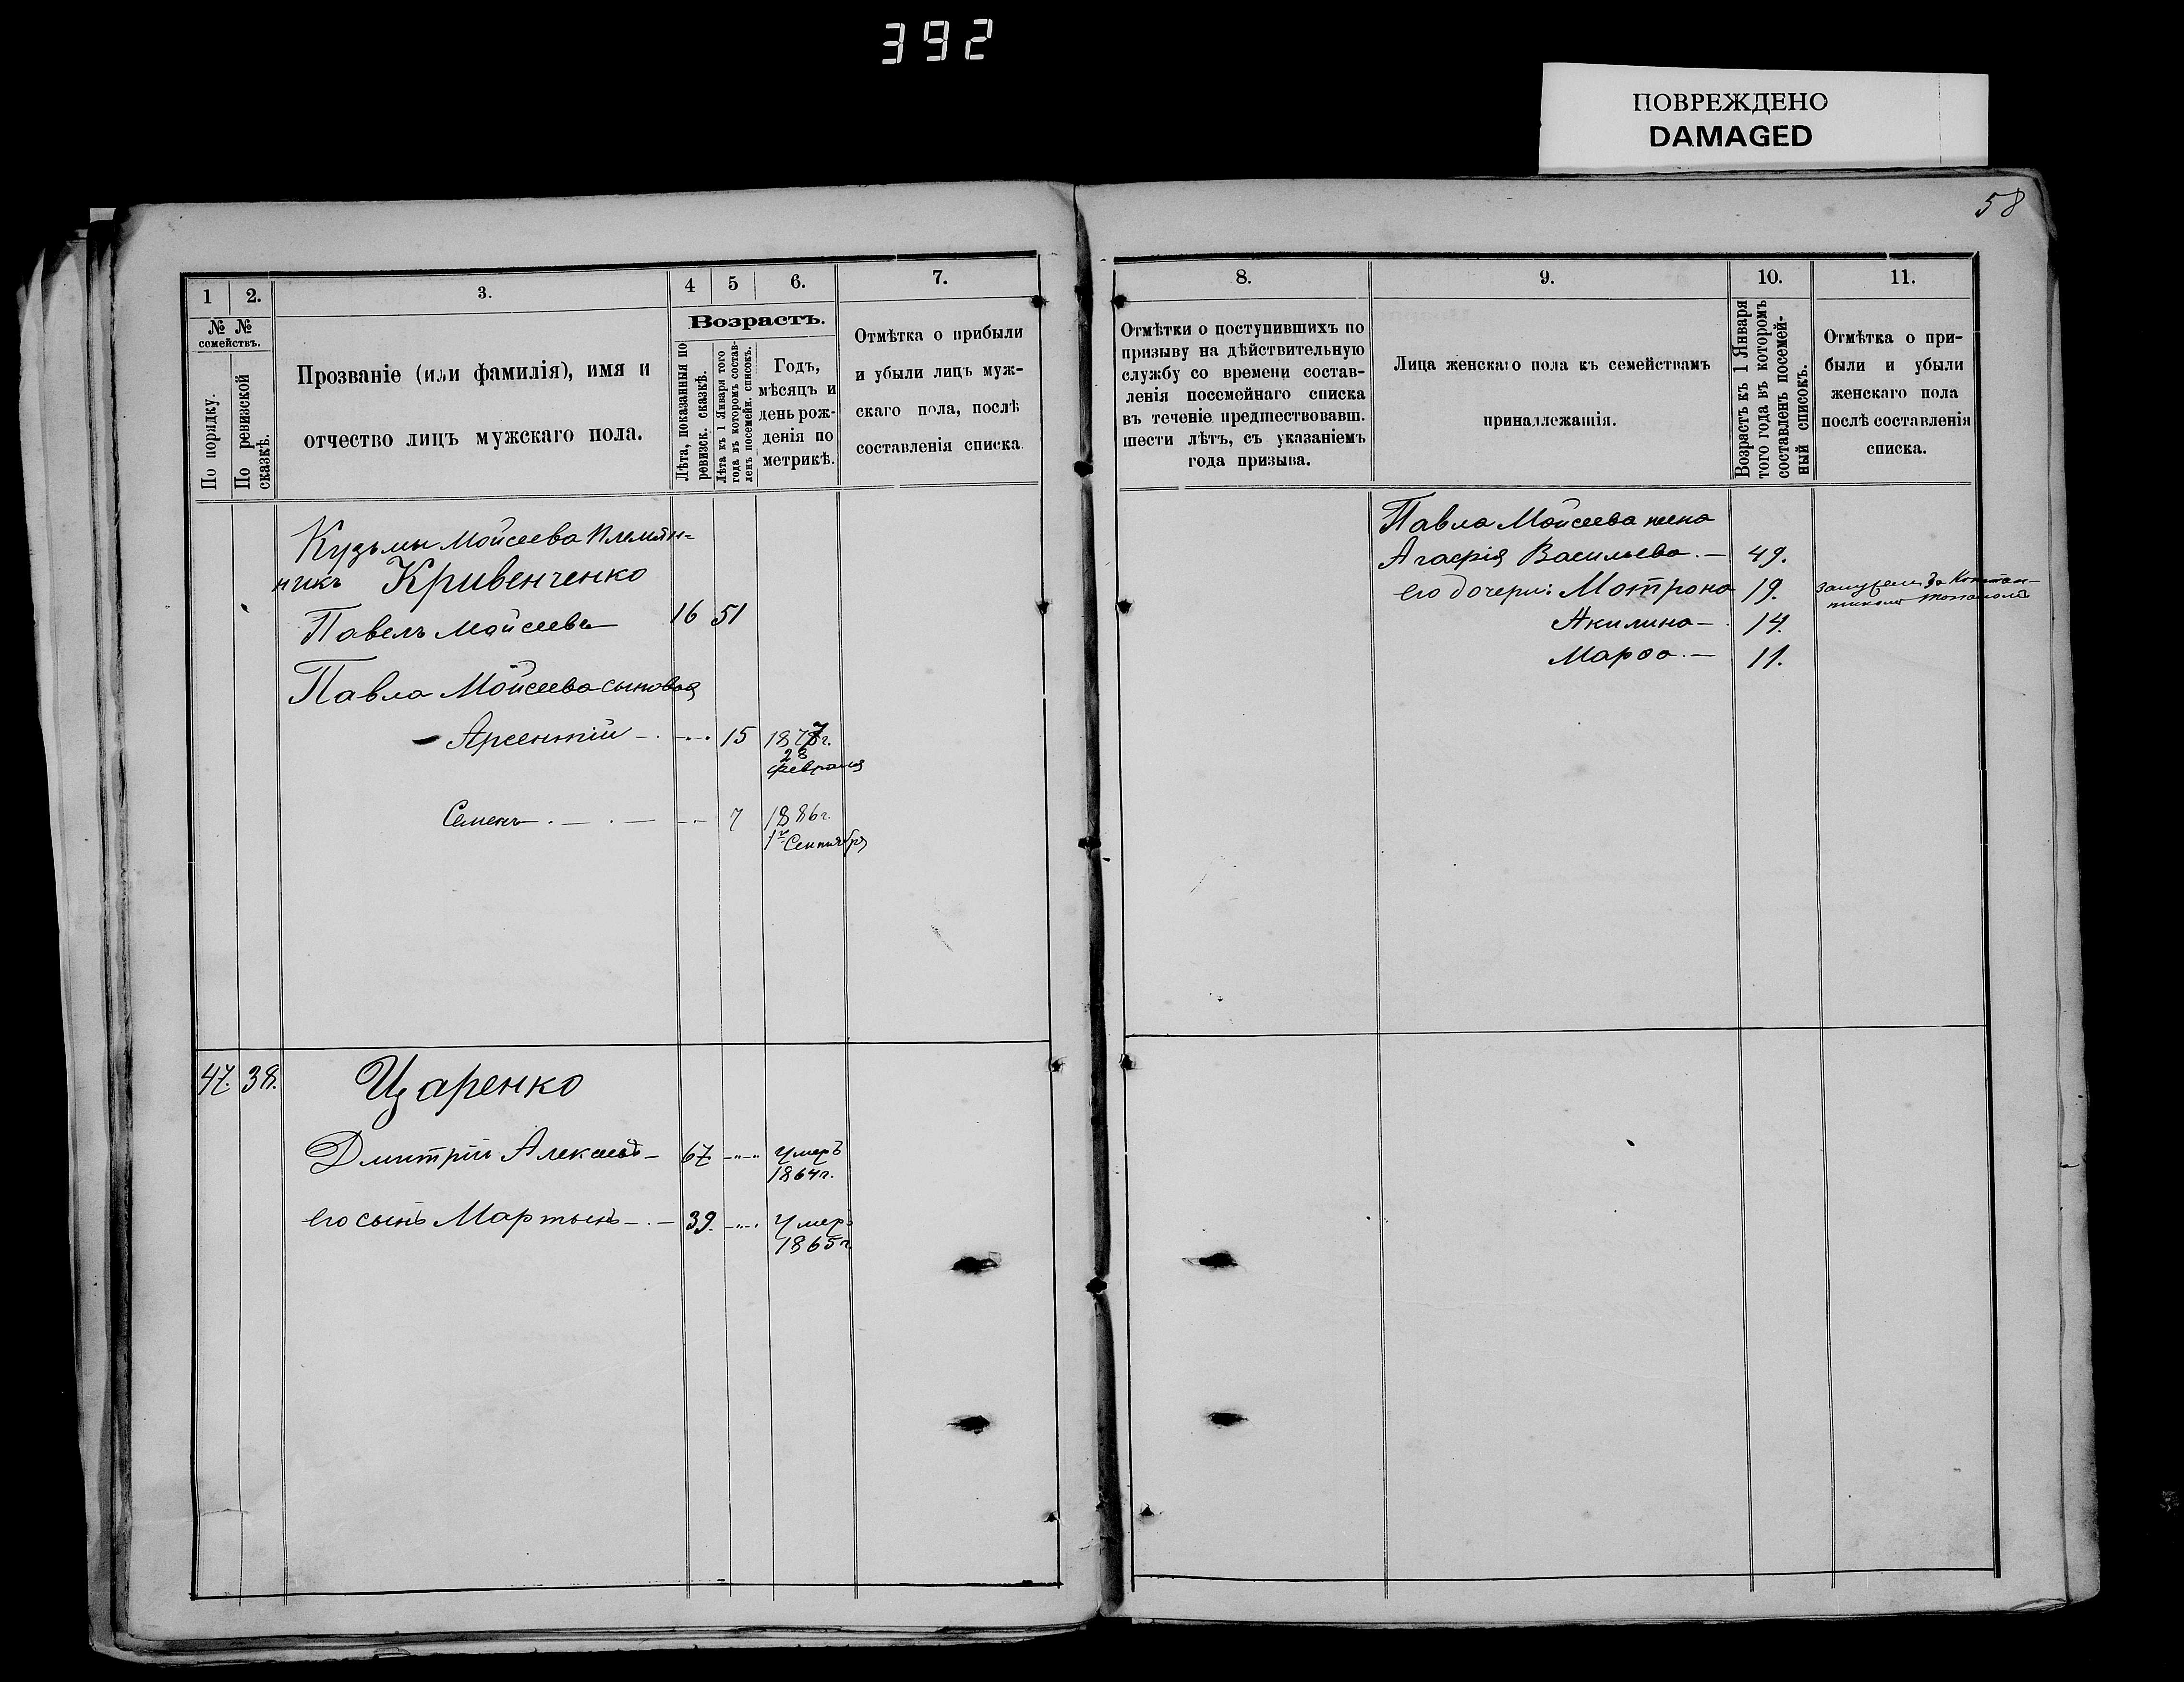 392
ПОВРЕЖДЕНО
DAMAGED
58
1
2.
3.
4
5
6.
7.
№ №
семействъ.
По порядку.
По ревизской
сказкѣ.
Прозваніе (или фамилія), имя и
отчество лицъ мужскаго пола.
Возрастъ.
Лѣта, показанныя по
ревизск. сказкѣ.
Лѣта къ 1 Января того
года въ которомъ состав-
ленъ посемейн. списокъ.
Годъ,
мѣсяцъ и
день рож-
денія по
метрикѣ.
Отмѣтка о прибыли
и убыли лицъ муж-
скаго пола, послѣ
составленія списка.
Кузьмы Мойсеева племян-
никъ Кривенченко
Павелъ Мойсеевъ 16 51
Павла Мойсеева сыновья
Арсентій 15 1877г.
28
февраля
Семенъ 7 1886г.
1го Сентября
47. 38. Царенко
Дмитрій Алексѣевъ 67 умеръ
1864г.
его сынъ Мартынъ 39. умеръ
1865г.
8.
9.
10.
11.
Отмѣтки о поступившихъ по
призыву на дѣйствительную
службу со времени состав-
ленія посемейнаго списка
въ теченіе предшествовавш.
шести лѣтъ, съ указаніемъ
года призыва.
Лица женскаго пола къ семействамъ
принадлежащія.
Возрастъ къ 1 Января
того года въ которомъ
составленъ посемей-
ный списокъ.
Отмѣтка о при-
были и убыли
женскаго пола
послѣ составленія
списка.
Павла Мойсеева жена
Агафія Васильева. 49.
его дочери: Мотрона 19. замужем за Констан-
Акилина 14.
Марѳа. 11.